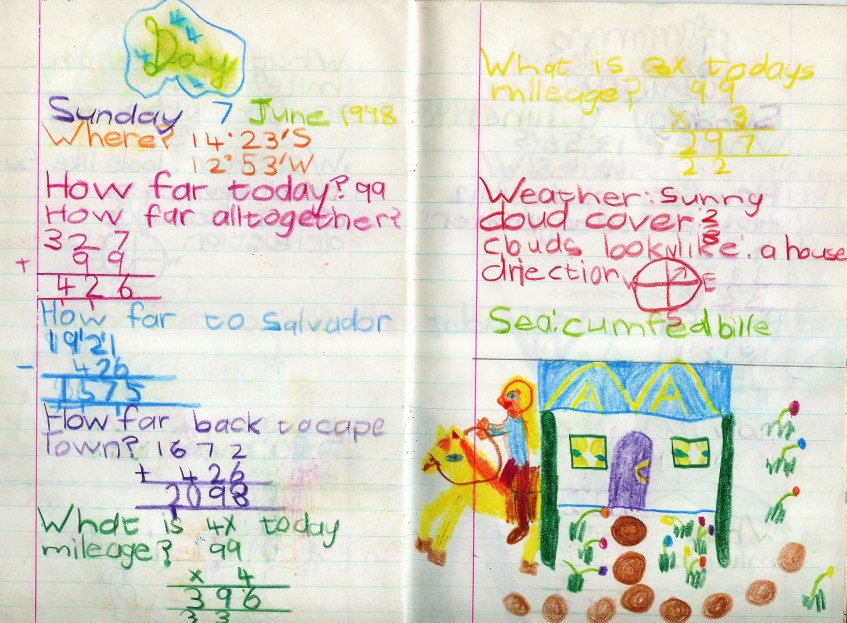 Day
Sunday 7 June 1998
Where? 14°23'S
12°53'W
How far today? 99
How far alltogether?
327
+ 99
426
How far to Salvador
1921
- 426
1575
How far back to cape
Town? 1672
+ 426
2098
What is 4x today
mileage? 99
x 4
396
33
What is 3x todays
mileage? 99
x 3
297
22
Weather: Sunny
cloud cover:
clouds look like: a house
driection W E
S
Sea: cumfedbille